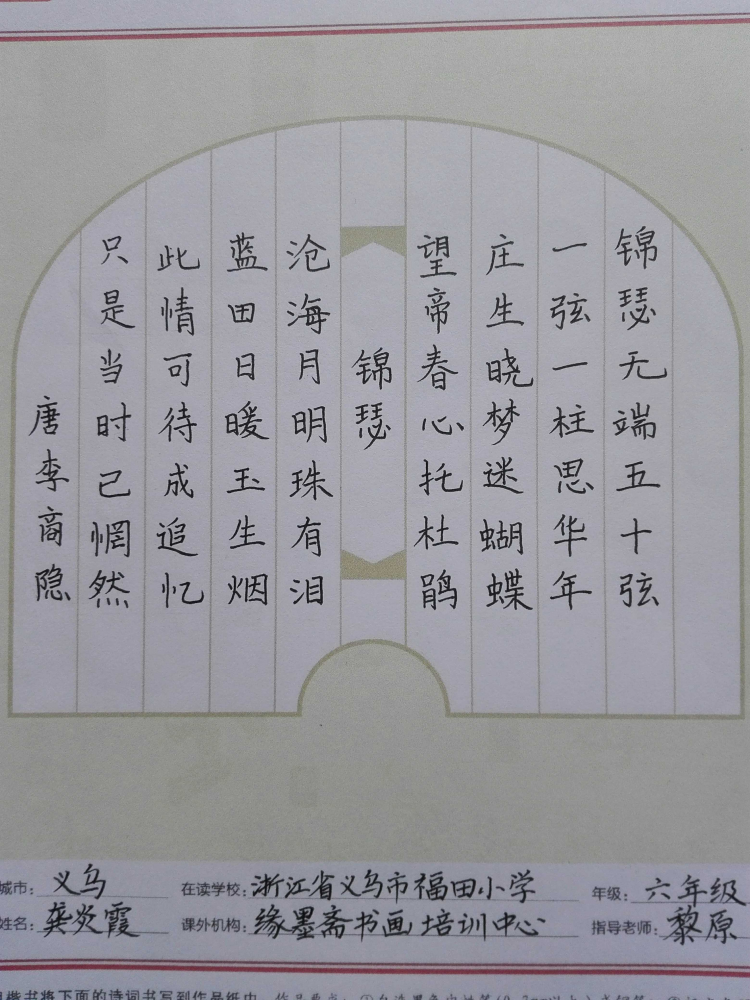 锦瑟无端五十弦
一弦一柱思华年
庄生晓梦迷蝴蝶
望帝春心托杜鹃
锦瑟
沧海月明珠有泪
蓝田日暖玉生烟
此情可待成追忆
只是当时已惘然
唐李商隐
城市：义乌 在读学校：浙江省义乌市福田小学 年级：六年级
姓名：龚炎霞 课外机构：缘墨斋书画培训中心 指导老师：黎原
楷书将下面的诗词书写到作品纸中